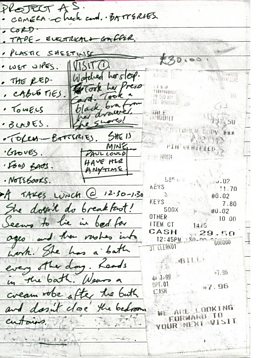 PROJECT A.S.
• CAMERA - check card. • BATTERIES.
• CORD.
• TAPE - ELECTRICAL + GAFFER
• PLASTIC SHEETING
• WET WIPES.
• THE RED.
• CABLE TIES.
• TOWELS
• BLADES.
• TORCH - BATTERIES.
• GLOVES.
• FOOD BAGS
• NOTEBOOKS.
VISIT ①
Watched her sleep.
Took her Press
card. Took a
black bra from
her drawer.
SHE IS
MINE
I COULD
HAVE HER
ANYTIME
£30.00
A TAKES LUNCH @ 12:30-1:30
She doesn't do breakfast!
Seems to lie in bed for
ages and then rushes into
work. She has a bath
every other day. Reads
in the bath. Wears a
cream robe after the bath
and doesn't close the bedroom
curtains.
PIN VERIFIED
KEYS
1.70
£0.02
KEYS
7.80
£0.02
OTHER
10.00
ITEM CT
CASH 29.50
12:45PM
BILL
CASH
7.96
WE ARE LOOKING
FORWARD TO
YOUR NEXT VISIT